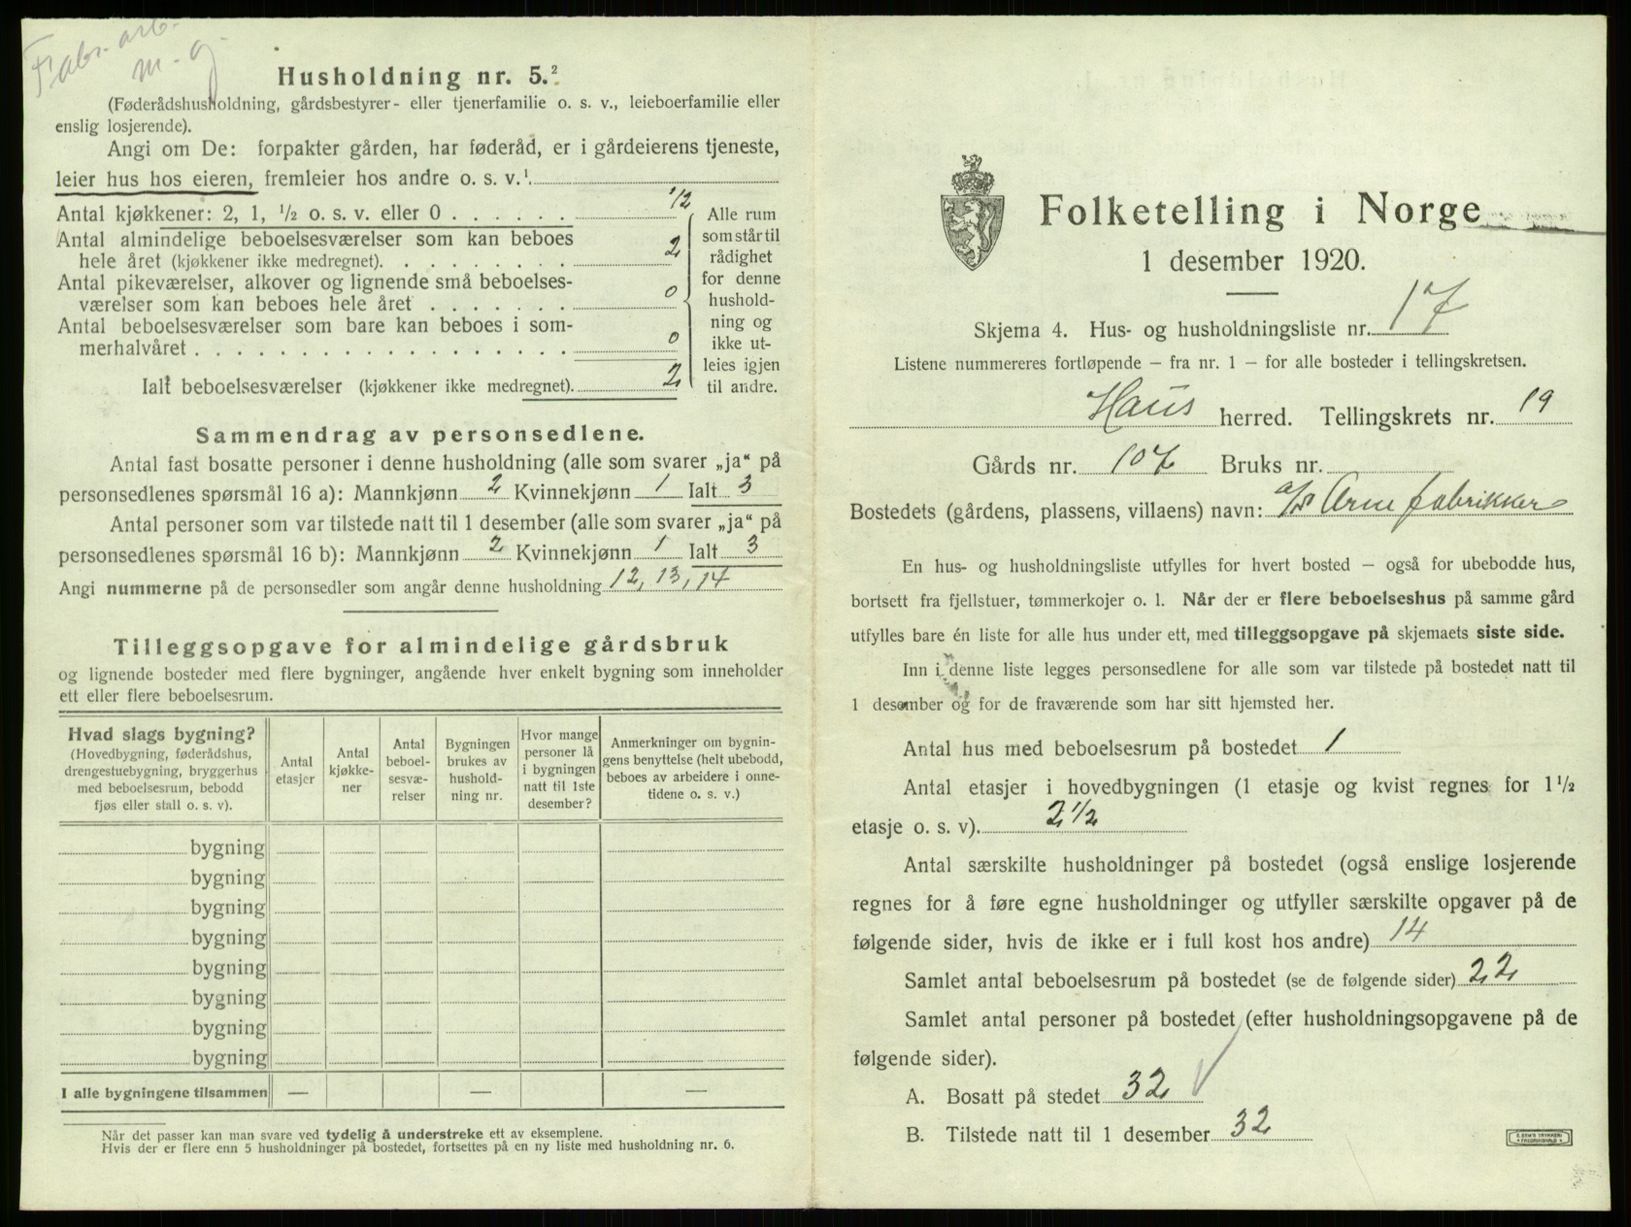 Fabr. arb.
m. g.
Husholdning nr. 5.²
(Føderådshusholdning, gårdsbestyrer- eller tjenerfamilie o. s. v., leieboerfamilie eller
enslig losjerende).
Angi om De: forpakter gården, har føderåd, er i gårdeierens tjeneste,
leier hus hos eieren, fremleier hos andre o. s. v.¹
Antal kjøkkener: 2, 1, ½ o. s. v. eller 0 . . . . . . ½
Antal almindelige beboelsesværelser som kan beboes
hele året (kjøkkener ikke medregnet). . . . . . . . . 2
Antal pikeværelser, alkover og lignende små beboelses-
værelser som kan beboes hele året . . . . . . . 0
Antal beboelsesværelser som bare kan beboes i som-
merhalvåret . . . . . . . . . . . . . . . . . . 0
Ialt beboelsesværelser (kjøkkener ikke medregnet). 2
Alle rum
som står til
rådighet
for denne
hushold-
ning og
ikke ut-
leies igjen
til andre.
Sammendrag av personsedlene.
Antal fast bosatte personer i denne husholdning (alle som svarer „ja“ på
personsedlenes spørsmål 16 a): Mannkjønn 2 Kvinnekjønn 1 Ialt 3
Antal personer som var tilstede natt til 1 desember (alle som svarer „ja“ på
personsedlenes spørsmål 16 b): Mannkjønn 2 Kvinnekjønn 1 Ialt 3
Angi nummerne på de personsedler som angår denne husholdning 12, 13, 14
Tilleggsopgave for almindelige gårdsbruk
og lignende bosteder med flere bygninger, angående hver enkelt bygning som inneholder
ett eller flere beboelsesrum.
Hvad slags bygning?
(Hovedbygning, føderådshus,
drengestuebygning, bryggerhus
med beboelsesrum, bebodd
fjøs eller stall o. s. v).
Antal
etasjer
Antal
kjøkke-
ner
Antal
beboel-
sesvæ-
relser
Bygningen
brukes av
hushold-
ning nr.
Hvor mange
personer lå
i bygningen
natt til 1ste
desember?
Anmerkninger om bygnin-
gens benyttelse (helt ubebodd,
beboes av arbeidere i onne-
tidene o. s. v.)
bygning
bygning
bygning
bygning
bygning
bygning
bygning
bygning
I alle bygningene tilsammen — — —
Når det passer kan man svare ved tydelig å understreke ett av eksemplene.
Hvis der er flere enn 5 husholdninger på bostedet, fortsettes på en ny liste med husholdning nr. 6.
Folketelling i Norge
1 desember 1920.
Skjema 4. Hus- og husholdningsliste nr. 17
Listene nummereres fortløpende — fra nr. 1 — for alle bosteder i tellingskretsen.
Haus herred. Tellingskrets nr. 19
Gårds nr. 107 Bruks nr.
Bostedets (gårdens, plassens, villaens) navn: a/s Arne fabrikker
En hus- og husholdningsliste utfylles for hvert bosted — også for ubebodde hus,
bortsett fra fjellstuer, tømmerkojer o. l. Når der er flere beboelseshus på samme gård
utfylles bare én liste for alle hus under ett, med tilleggsopgave på skjemaets siste side.
Inn i denne liste legges personsedlene for alle som var tilstede på bostedet natt til
1 desember og for de fraværende som har sitt hjemsted her.
Antal hus med beboelsesrum på bostedet 1
Antal etasjer i hovedbygningen (1 etasje og kvist regnes for 1½
etasje o. s. v). 2½
Antal særskilte husholdninger på bostedet (også enslige losjerende
regnes for å føre egne husholdninger og utfyller særskilte opgaver på de
følgende sider, hvis de ikke er i full kost hos andre) 14
Samlet antal beboelsesrum på bostedet (se de følgende sider) 22
Samlet antal personer på bostedet (efter husholdningsopgavene på de
følgende sider).
A. Bosatt på stedet 32
B. Tilstede natt til 1 desember 32